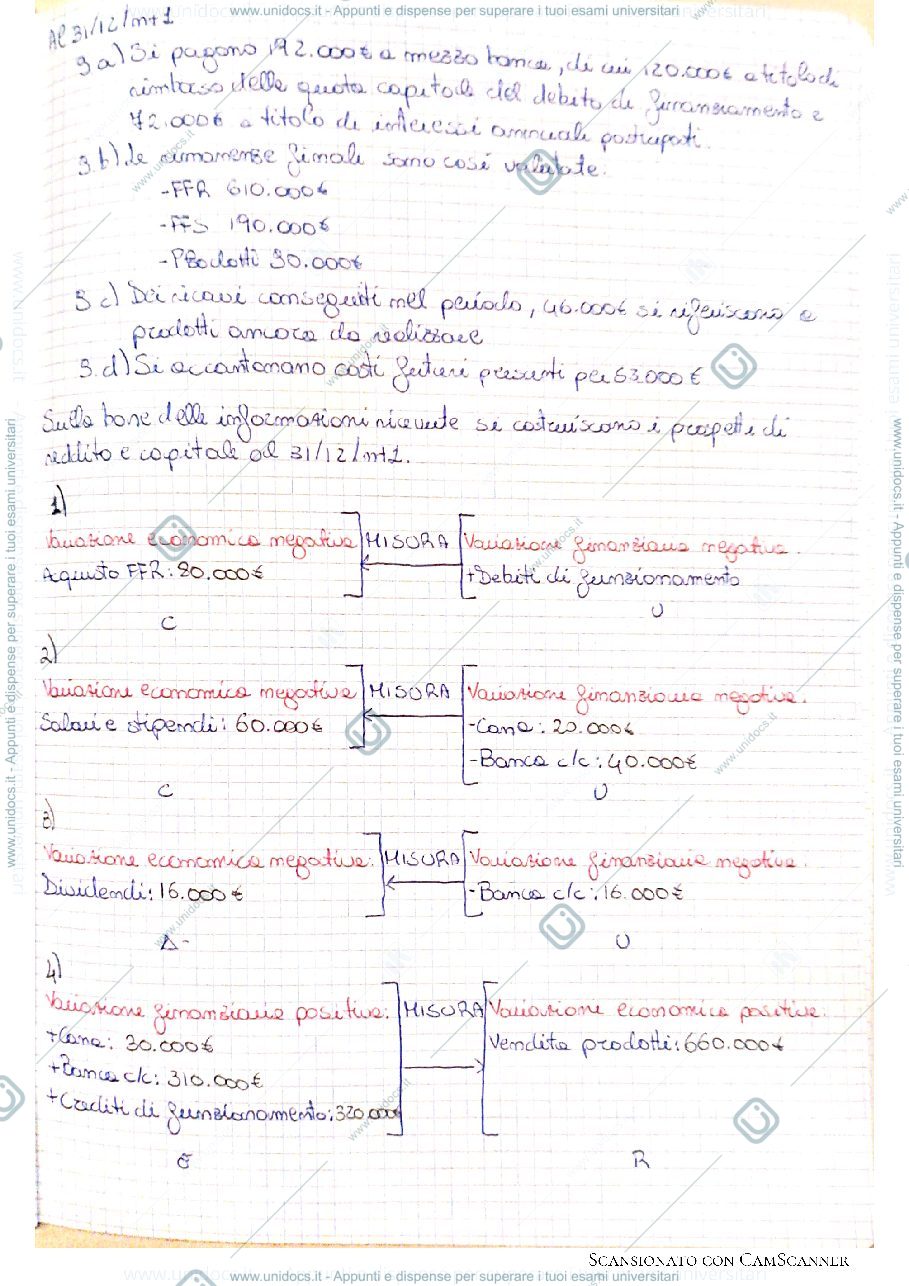 www.unidocs.it - Appunti e dispense per superare i tuoi esami universitari
Al 31/12/n+1
3.a) Si pagano 192.000€ a mezzo banca, di cui 120.000€ a titolo di
rimborso della quota capitale del debito di finanziamento e
72.000€ a titolo di interessi annuali posticipati.
3.b) Le rimanenze finali sono così valutate:
-FFR 610.000€
-FFS 190.000€
-Prodotti 30.000€
3.c) Dei ricavi conseguiti nel periodo, 46.000€ si riferiscono a
prodotti ancora da realizzare
3.d) Si accantonano costi futuri presunti per 63.000€
Sulla base delle informazioni ricevute si costruiscono i prospetti di
reddito e capitale al 31/12/n+1.
1)
Variazione economica negativa MISURA Variazione finanziaria negativa.
Acquisto FFR: 80.000€ +Debiti di funzionamento
C U
2)
Variazione economica negativa MISURA Variazione finanziaria negativa.
Salari e stipendi: 60.000€ -Cassa: 20.000€
-Banca c/c: 40.000€
C U
3)
Variazione economica negativa. MISURA Variazione finanziaria negativa.
Dividendi: 16.000€ -Banca c/c: 16.000€
Δ- U
4)
Variazione finanziaria positiva. MISURA Variazione economica positiva.
+Cassa: 30.000€ Vendita prodotti: 660.000€
+Banca c/c: 310.000€
+Crediti di funzionamento: 320.000€
E R
SCANSIONATO CON CAMSCANNER
www.unidocs.it - Appunti e dispense per superare i tuoi esami universitari